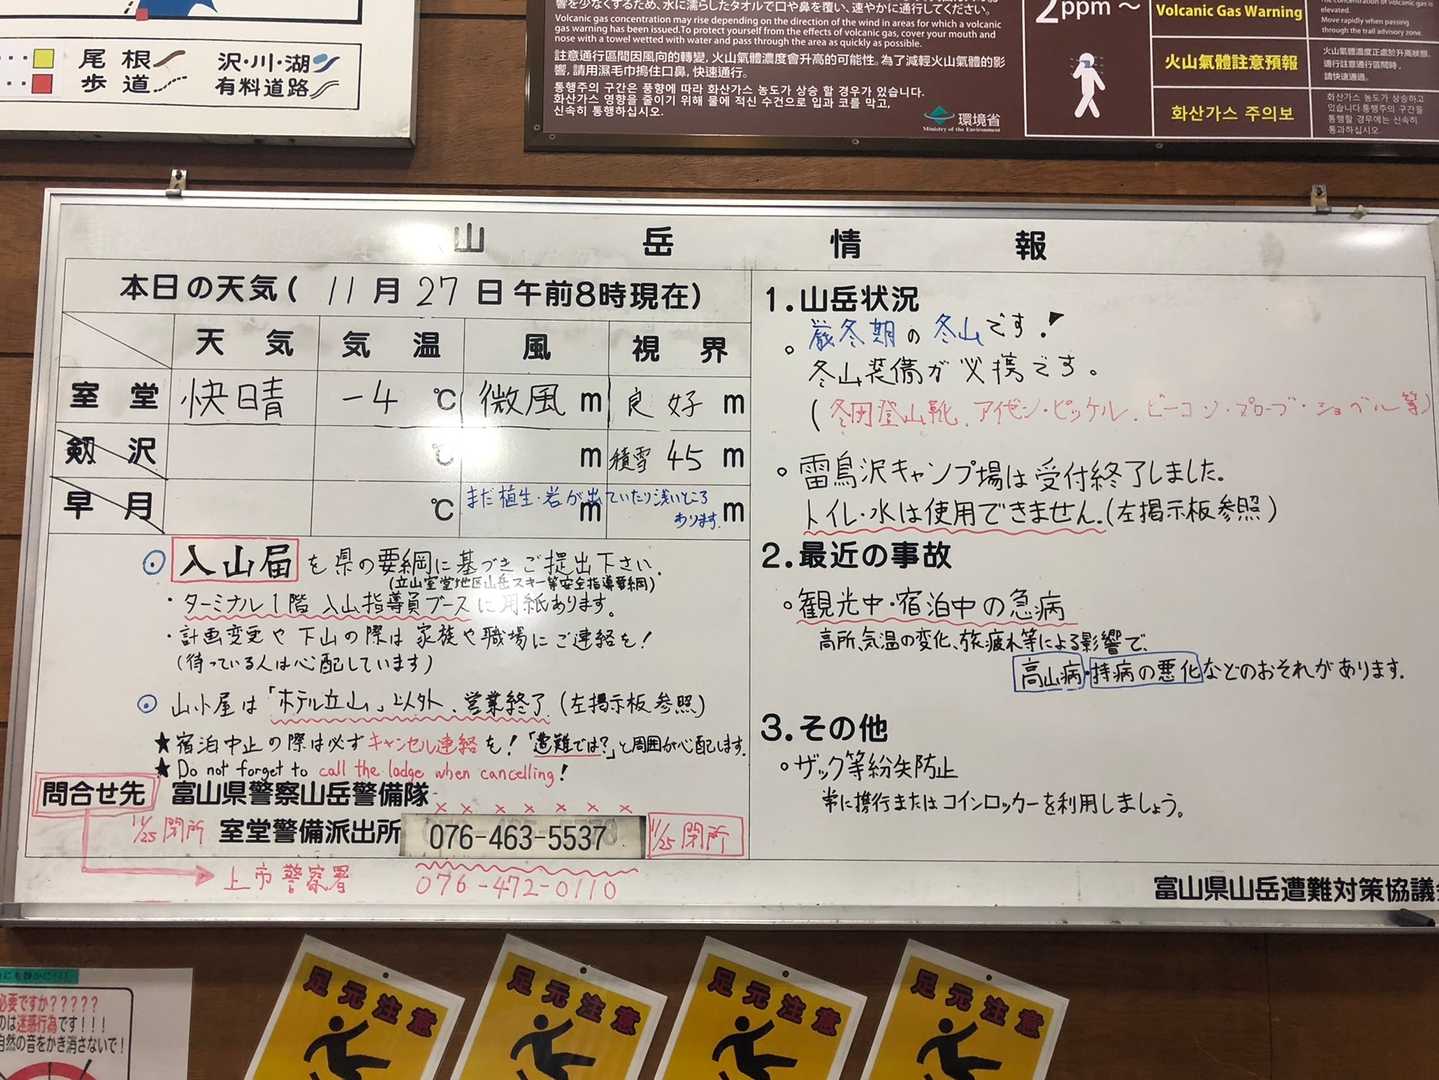 尾根 沢・川・湖
歩道 有料道路
響を少なくするため、水に濡らしたタオルで口や鼻を覆い、速やかに通行してください。
Volcanic gas concentration may rise depending on the direction of the wind in areas for which a volcanic
gas warning has been issued.To protect yourself from the effects of volcanic gas, cover your mouth and
nose with a towel wetted with water and pass through the area as quickly as possible.
註意通行區間因風向的轉變，火山氣體濃度會升高的可能性。為了減輕火山氣體的影
響，請用濕毛巾捂住口鼻，快速通行。
통행주의 구간은 풍향에 따라 화산가스 농도가 상승 할 경우가 있습니다.
화산가스 영향을 줄이기 위해 물에 적신 수건으로 입과 코를 막고,
신속히 통행하십시오.
環境省
Ministry of the Environment
2ppm～
Volcanic Gas Warning
The concentration of volcanic gas is
elevated.
Move rapidly when passing
through the trail advisory zone.
火山氣體註意預報
火山氣體濃度正處於升高狀態,
通行註意通行區間時,
請快速通過。
화산가스 주의보
화산가스 농도가 상승하고
있습니다 통행주의 구간을
통행할 경우에는 신속히
통과하십시오.
山岳情報
本日の天気( 11月27日 午前8時現在)
天気 気温 風 視界
室堂 快晴 -4 ℃ 微風 m 良好 m
剱沢 ℃ m 積雪 45 m
早月 ℃ m m
まだ植生・岩が出ていたり浅いところ
あります。
入山届を県の要綱に基づきご提出下さい。
(立山室堂地区山岳スキー等安全指導要綱)
・ターミナル1階 入山指導員ブースに用紙あります。
・計画変更や下山の際は家族や職場にご連絡を!
(待っている人は心配しています)
山小屋は「ホテル立山」以外、営業終了 (左掲示板参照)
★宿泊中止の際は必ずキャンセル連絡を!「遭難では?」と周囲が心配します.
★ Do not forget to call the lodge when cancelling!
問合せ先 富山県警察山岳警備隊
11/25 閉所 室堂警備派出所 076-463-5537 11/25 閉所
上市警察署 076-472-0110
1.山岳状況
。厳冬期の冬山です!
冬山装備が必携です。
(冬用登山靴、アイゼン・ピッケル、ビーコン・プローブ・ショベル等)
。雷鳥沢キャンプ場は受付終了しました。
トイレ・水は使用できません。(左掲示板参照)
2.最近の事故
。観光中・宿泊中の急病
高所、気温の変化、旅疲れ等による影響で、
高山病・持病の悪化などのおそれがあります.
3.その他
。ザック等紛失防止
常に携行またはコインロッカーを利用しましょう。
富山県山岳遭難対策協議会
必要ですか?????
のは迷惑行為です!!!
自然の音をかき消さないで!
足元注意
足元注意
足元注意
足元注意